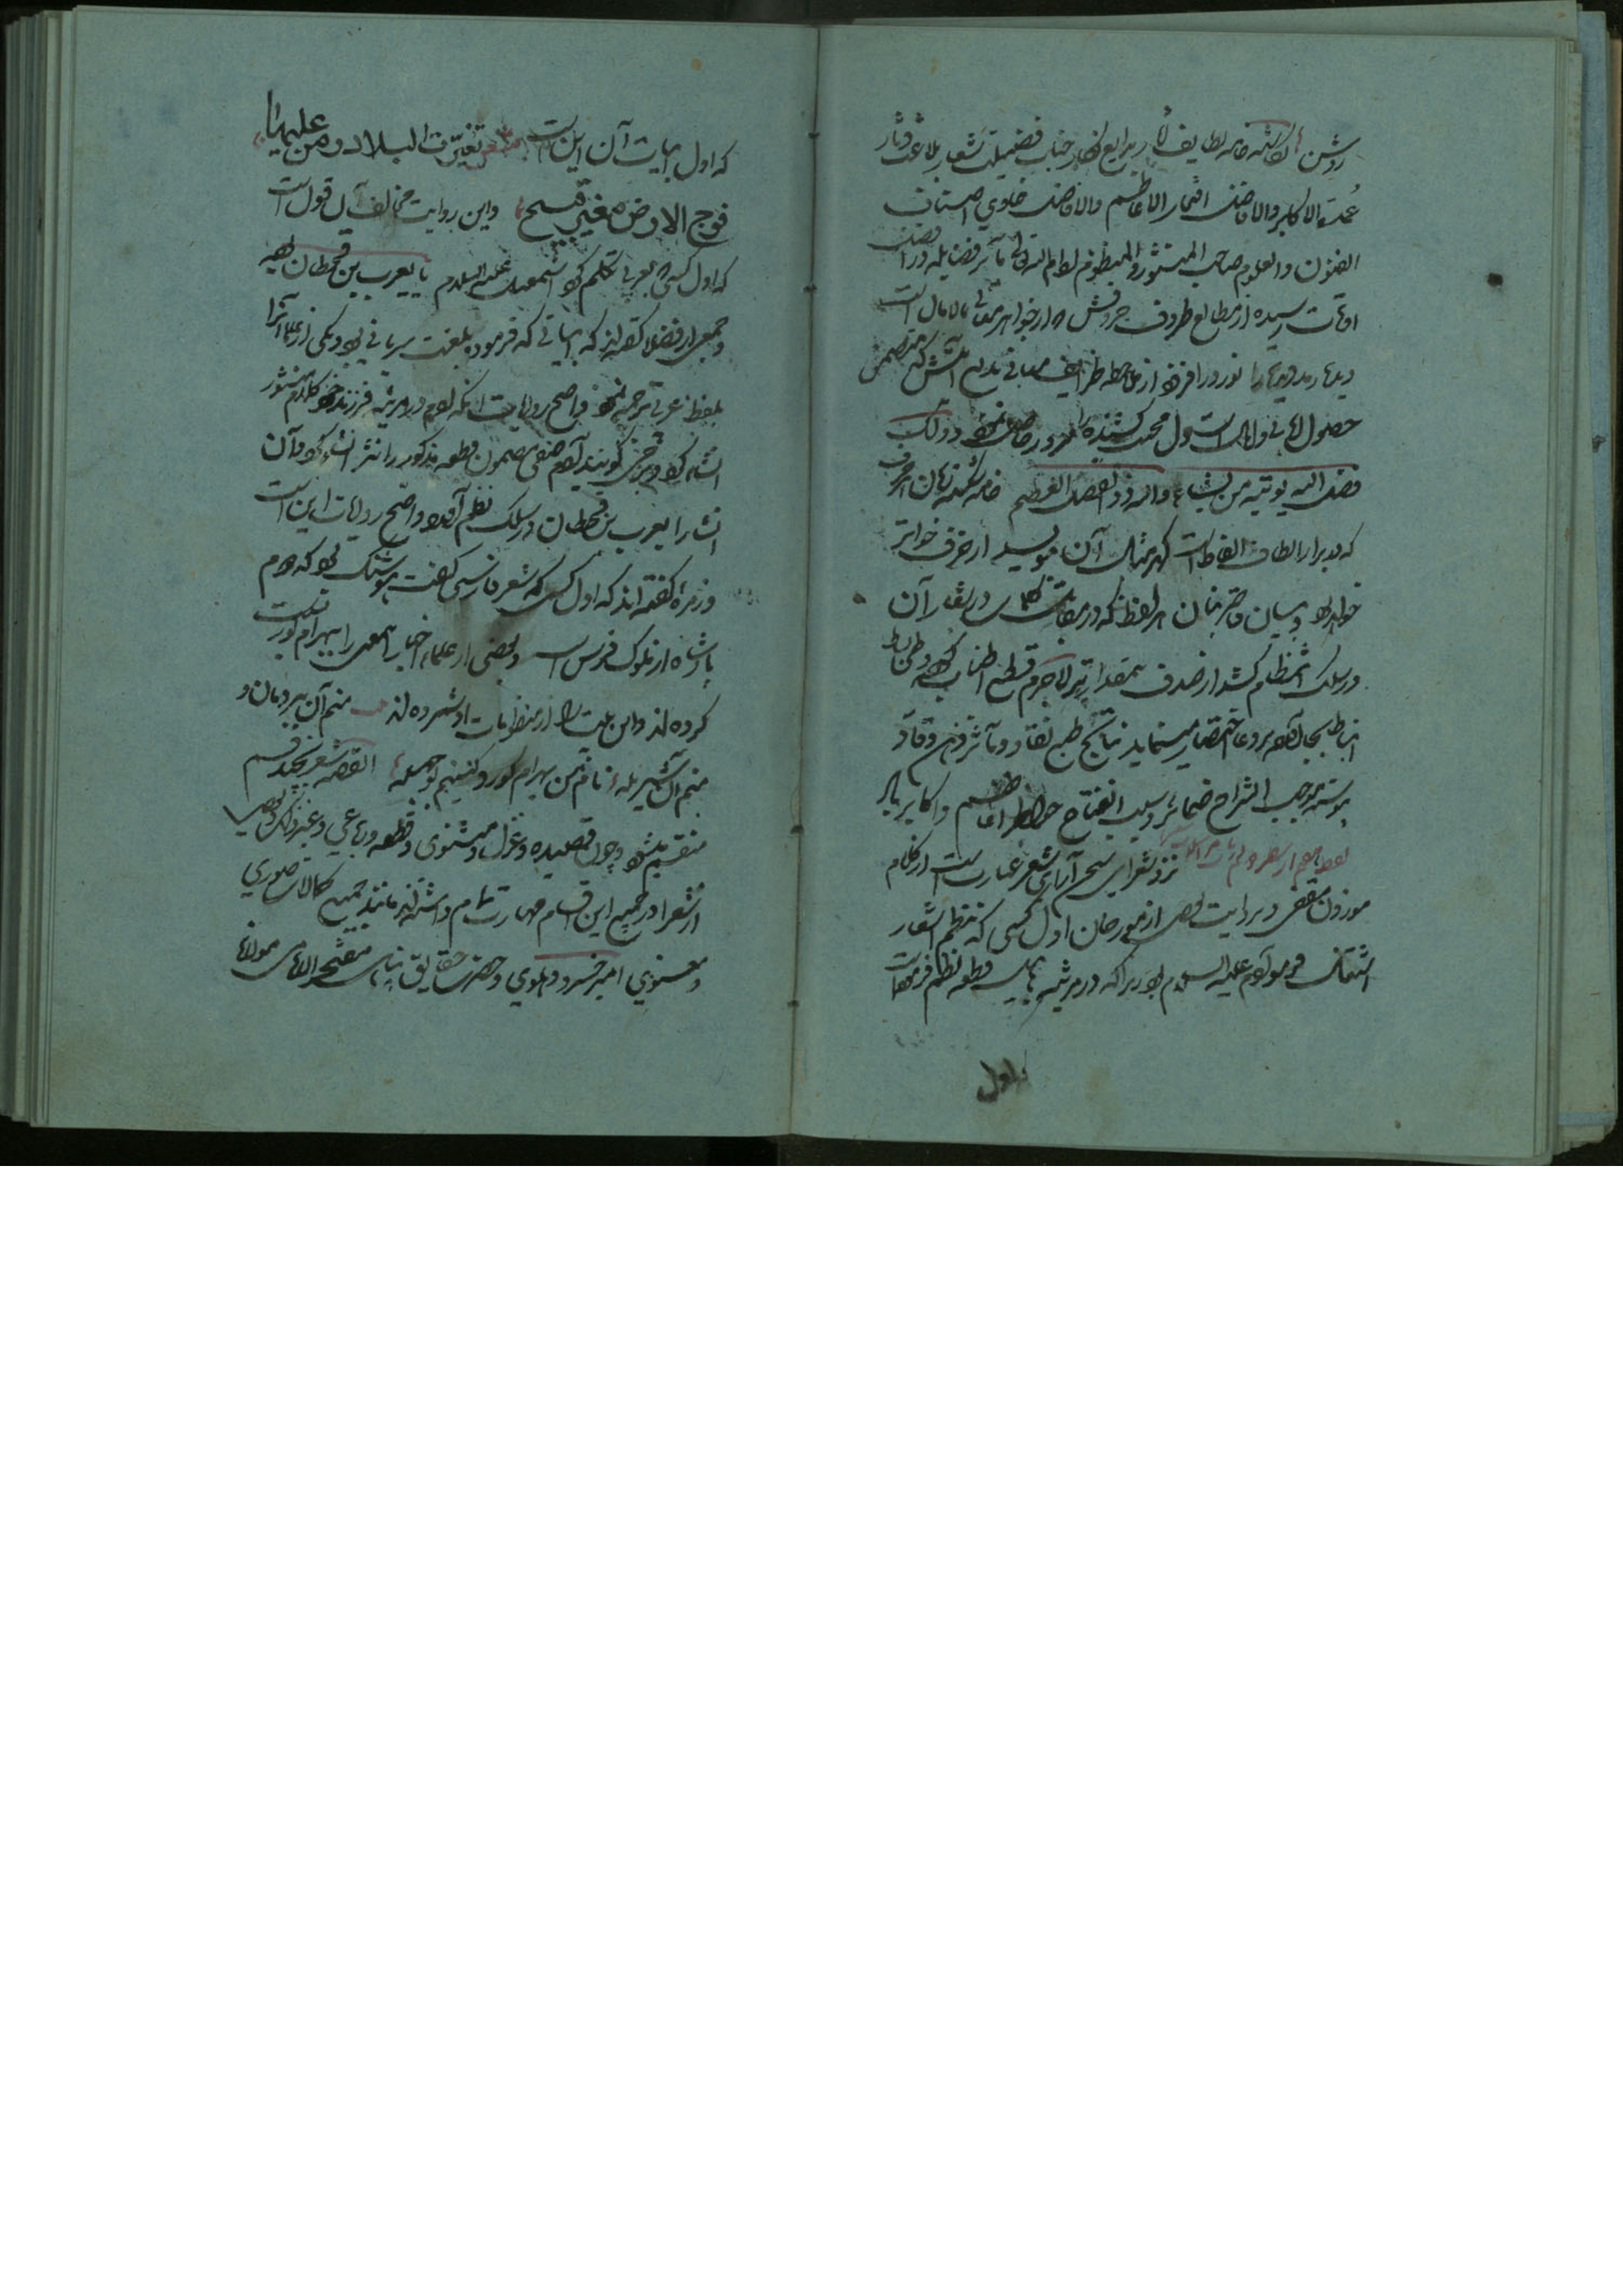 روشن نکاشته خامه لطایف نکار بدایع نکار جناب فضیلت شعار بلاغت دثار
عمدة الاکابر والافاضل افتخار الاعاظم والافاضل حاوی اصناف
الفنون والعلوم صاحب المنثور والمنظوم ادام الله تعالی مآثر فضایله در افضل
اوقات رسیده از مطالع ظروف حروفش که از جواهر معانی مالامال است
دیده رمد دیده را نور در افزود از ملاحظه ظرایف معانی بدایع آیتش که متضمن
حصول امانی و آمال است دل محنت کشیده را سرور حاصل نمود ذلک
فضل الله یوتیه من یشاء والله ذو الفضل العظیم خامه شکسته زبان هر حرف
که در ابراز الطاف الفاظ گهر مثال آن می نویسد از خرف خوارتر
خواهد بود و بیان قاصر بنان هر لفظ که در مقابل کلمات درر نثار آن
در سلک انتظام کشد از صدف بمقدارتر لاجرم قطع اطناب کرده و طی بساط
انبساط بجا آورده بر دعا اختصار مینماید نتایج طبع نقاد و مآثر ذهن وقاد
پیوسته موجب انشراح ضمائر و سبب انفتاح خواطر اعاظم و اکابر باد
نزد شعرای سخن آرای شعر عبارتست از کلام
موزون مقفی و بروایت بعضی از مورخان اول کسی که بنظم اشعار
اشتغال فرمود آدم علیه السلام بود زیرا که در مرثیه هابیل قطعه نظم فرموده است
که اول ابیات آن این است شعر تغیرت البلاد ومن علیها
فوجه الارض مغبر قبیح واین روایت مخالف آن قول است
که اول کسی که بعربی تکلم کرد اسمعیل علیه السلام یا یعرب بن قحطان بود
و جمعی از فضلا گفته اند که ابیاتی که فرمود بلغت سریانی بود و یکی از علما آنرا
بلفظ عربی ترجمه نمود و اصح روایات آنکه آدم در مرثیه فرزند خود کلام منثور
انشا کرد و برخی گویند آدم صفی مضمون قطعه مذکور را نثر انشا کرد و آن
انشا را یعرب بن قحطان در سلک نظم آورد و اصح روایات این است
و زمره گفته اند که اول کسی که شعر فارسی گفت هوشنک بود که دوم
پادشاه از ملوک فرس است و بعضی از علماء اخبار این معنی را ببهرام گور نسبت
کرده اند و این بیت را از منظومات او شمرده اند منم آن پیر دمان و
منم آن شیر یله نام من بهرام گور و کنیتم بوجبله القصه شعر بچند قسم
منقسم میشود چون قصیده و غزل و مثنوی و قطعه و رباعی و غیر ذلک و بعضی
از شعرا در جمیع این اقسام مهارت تمام داشته اند مانند جمیع کمالات صوری
و معنوی امیر خسرو دهلوی و حضرت حقایق پناهی متبحر الانامی مولانا
اول